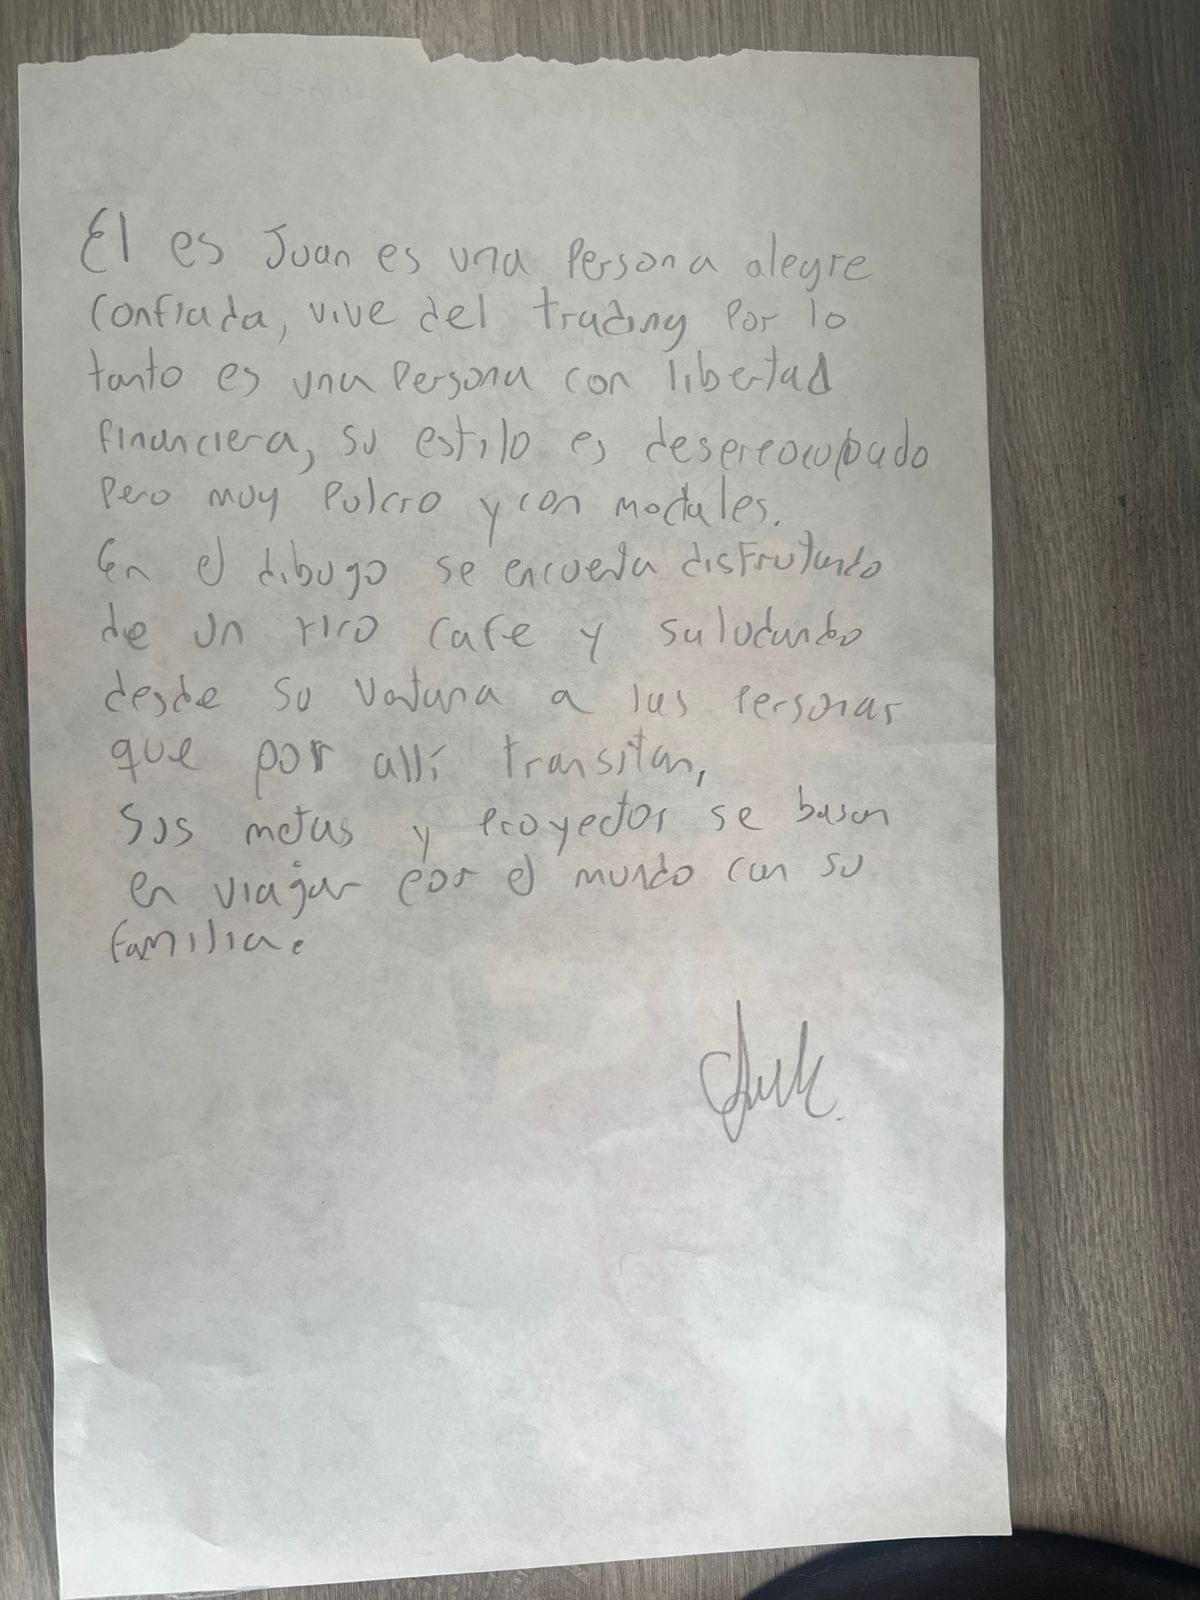 El es Juan es una Persona alegre
confiada, vive del trading Por lo
tanto es una Persona con libertad
financiera, su estilo es despreocupado
Pero muy Pulcro y con modales.
En el dibugo se encuetra disfrutando
de un rico cafe y saludando
desde su Ventana a las Personas
que por allí transitan,
Sus metas y Proyectos se basan
en viajar por el mundo con su
familia.